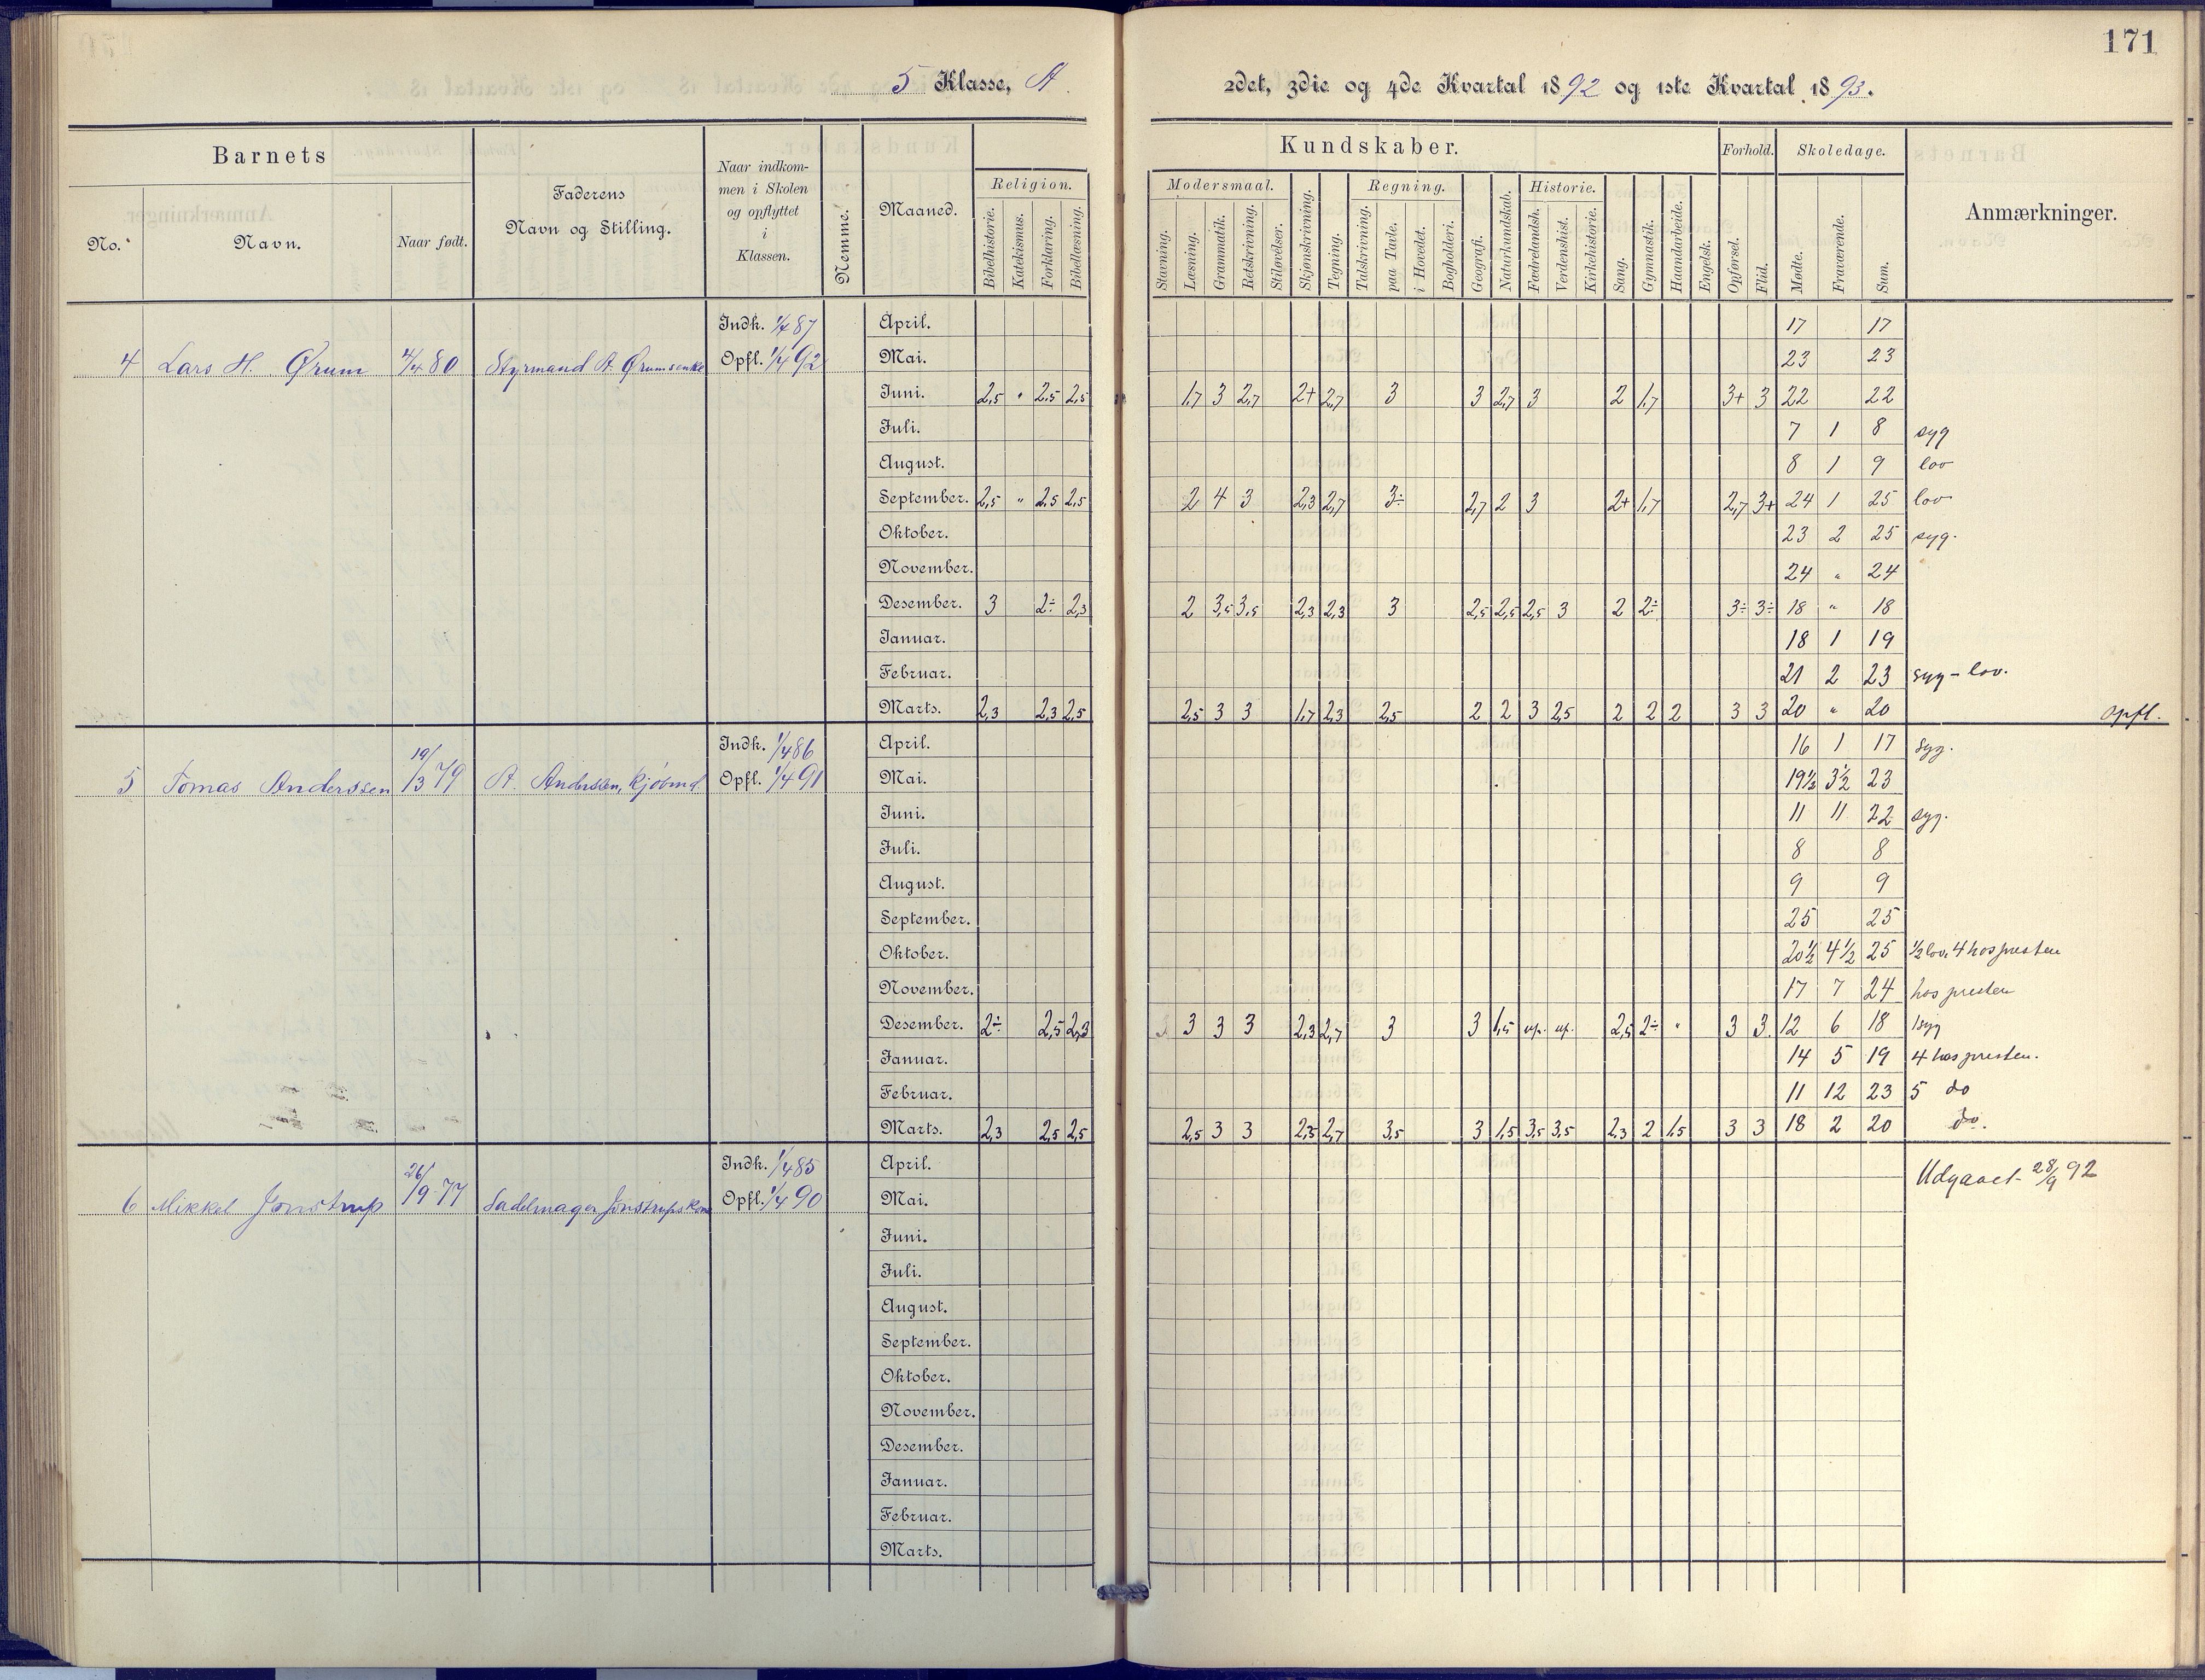 171
5 Klasse, A. 2det, 3die og 4de Kvartal 1892 og 1ste Kvartal 1893.
Barnets
No.
Navn.
Naar født.
Faderens
Navn og Stilling.
Naar indkom-
men i Skolen
og opflyttet
i
Klassen.
Nemme.
Maaned.
Kundskaber.
Religion.
Bibelhistorie.
Katekismus.
Forklaring.
Bibellæsning.
Modersmaal.
Stavning.
Læsning.
Grammatik.
Retskrivning.
Stiløvelser.
Skjønskrivning.
Tegning.
Regning.
Talskrivning.
paa Tavle.
i Hovedet.
Bogholderi.
Geografi.
Naturkundskab.
Historie.
Fædrelandsh.
Verdenshist.
Kirkehistorie.
Sang.
Gymnastik.
Haandarbeide.
Engelsk.
Forhold.
Opførsel.
Flid.
Skoledage.
Mødte.
Fraværende.
Sum.
Anmærkninger.
Indh. 1/4 87 April. 17 17
4 Lars H. Ørum 4/4 80 Styrmand A. Ørums enke Opfl. 1/4 92 Mai. 23 23
Juni. 2,5 " 2,5 2,5 1,7 3 2,7 2+ 2,7 3 3 2,7 3 2 1,7 3+ 3 22 22
Juli. 7 1 8 syg
August. 8 1 9 lov
September. 2,5 " 2,5 2,5 2 4 3 2,3 2,7 3÷ 2,7 2 3 2+ 1,7 2,7 3+ 24 1 25 lov
Oktober. 23 2 25 syg.
November. 24 " 24
Desember. 3 2÷ 2,3 2 3,5 3,5 2,3 2,3 3 2,5 2,5 2,5 3 2 2÷ 3÷ 3÷ 18 " 18
Januar. 18 1 19
Februar. 21 2 23 syg - lov.
Marts. 2,3 2,3 2,5 2,5 3 3 1,7 2,3 2,5 2 2 3 2,5 2 2 2 3 3 20 " 20 opfl.
Indh. 1/4 86 April. 16 1 17 syg.
5 Tomas Anderssen 19/3 79 A. Anderssen, kjøbmd. Opfl. 1/4 91 Mai. 19 1/2 3 1/2 23
Juni. 11 11 22 syg.
Juli. 8 8
August. 9 9
September. 25 25
Oktober. 20 1/2 4 1/2 25 1/2 lov. 4 hos presten
November. 17 7 24 hos presten
Desember. 2÷ 2,5 2,3 3 3 3 2,3 2,7 3 3 1,5 up. up. 2,5 2÷ " 3 3 12 6 18 1 syg
Januar. 14 5 19 4 hos presten.
Februar. 11 12 23 5 do
Marts. 2,3 2,5 2,5 2,5 3 3 2,5 2,7 3,5 3 1,5 3,5 3,5 2,3 2 1,5 3 3 18 2 20 do.
Indh. 1/4 85 April. Udgaaet 28/9 92
6 Mikkel Jonstrup 26/9 77 Sadelmager Jonstrups kone Opfl. 1/4 90 Mai.
Juni.
Juli.
August.
September.
Oktober.
November.
Desember.
Januar.
Februar.
Marts.